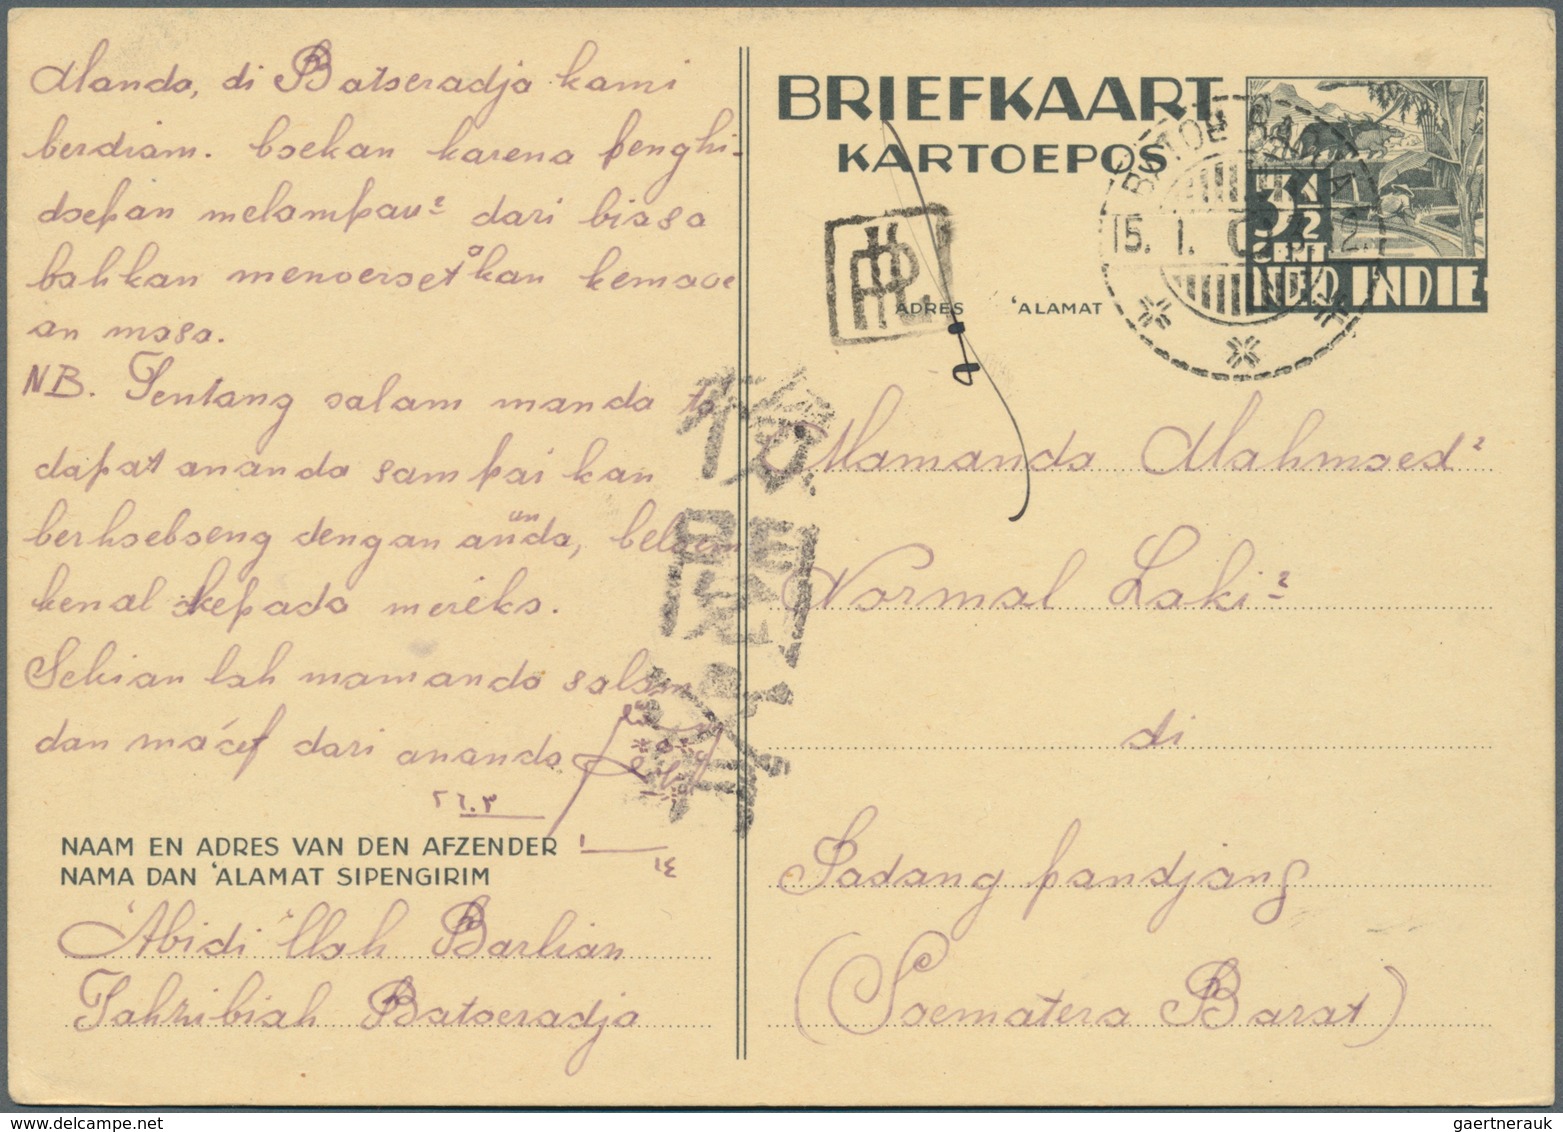 Manda, di Batoeradja kami
berdiam. boekan karena penghi-
doepan melampau² dari biasa
bahkan menoeroet kan kemaoe
an masa.
NB. Tentang salam manda ta'
dapat ananda sampai kan
berhoeboeng dengan ananda, beloem
kenal kepada meréka.
Sekian lah mamanda salam
dan ma'af dari ananda
٢٦.٣
١
١٤
NAAM EN ADRES VAN DEN AFZENDER
NAMA DAN 'ALAMAT SIPENGIRIM
'Abidi'llah Barlian
Tahzibiah Batoeradja
BRIEFKAART
KARTOEPOS
3½
CENT
NED. INDIE
15. 1. 02
ADRES 'ALAMAT
Mamanda Mahmoed²
Normal Laki²
di
Padang pandjang
(Soematera Barat)
検
閲
済
gaertnerauk.com